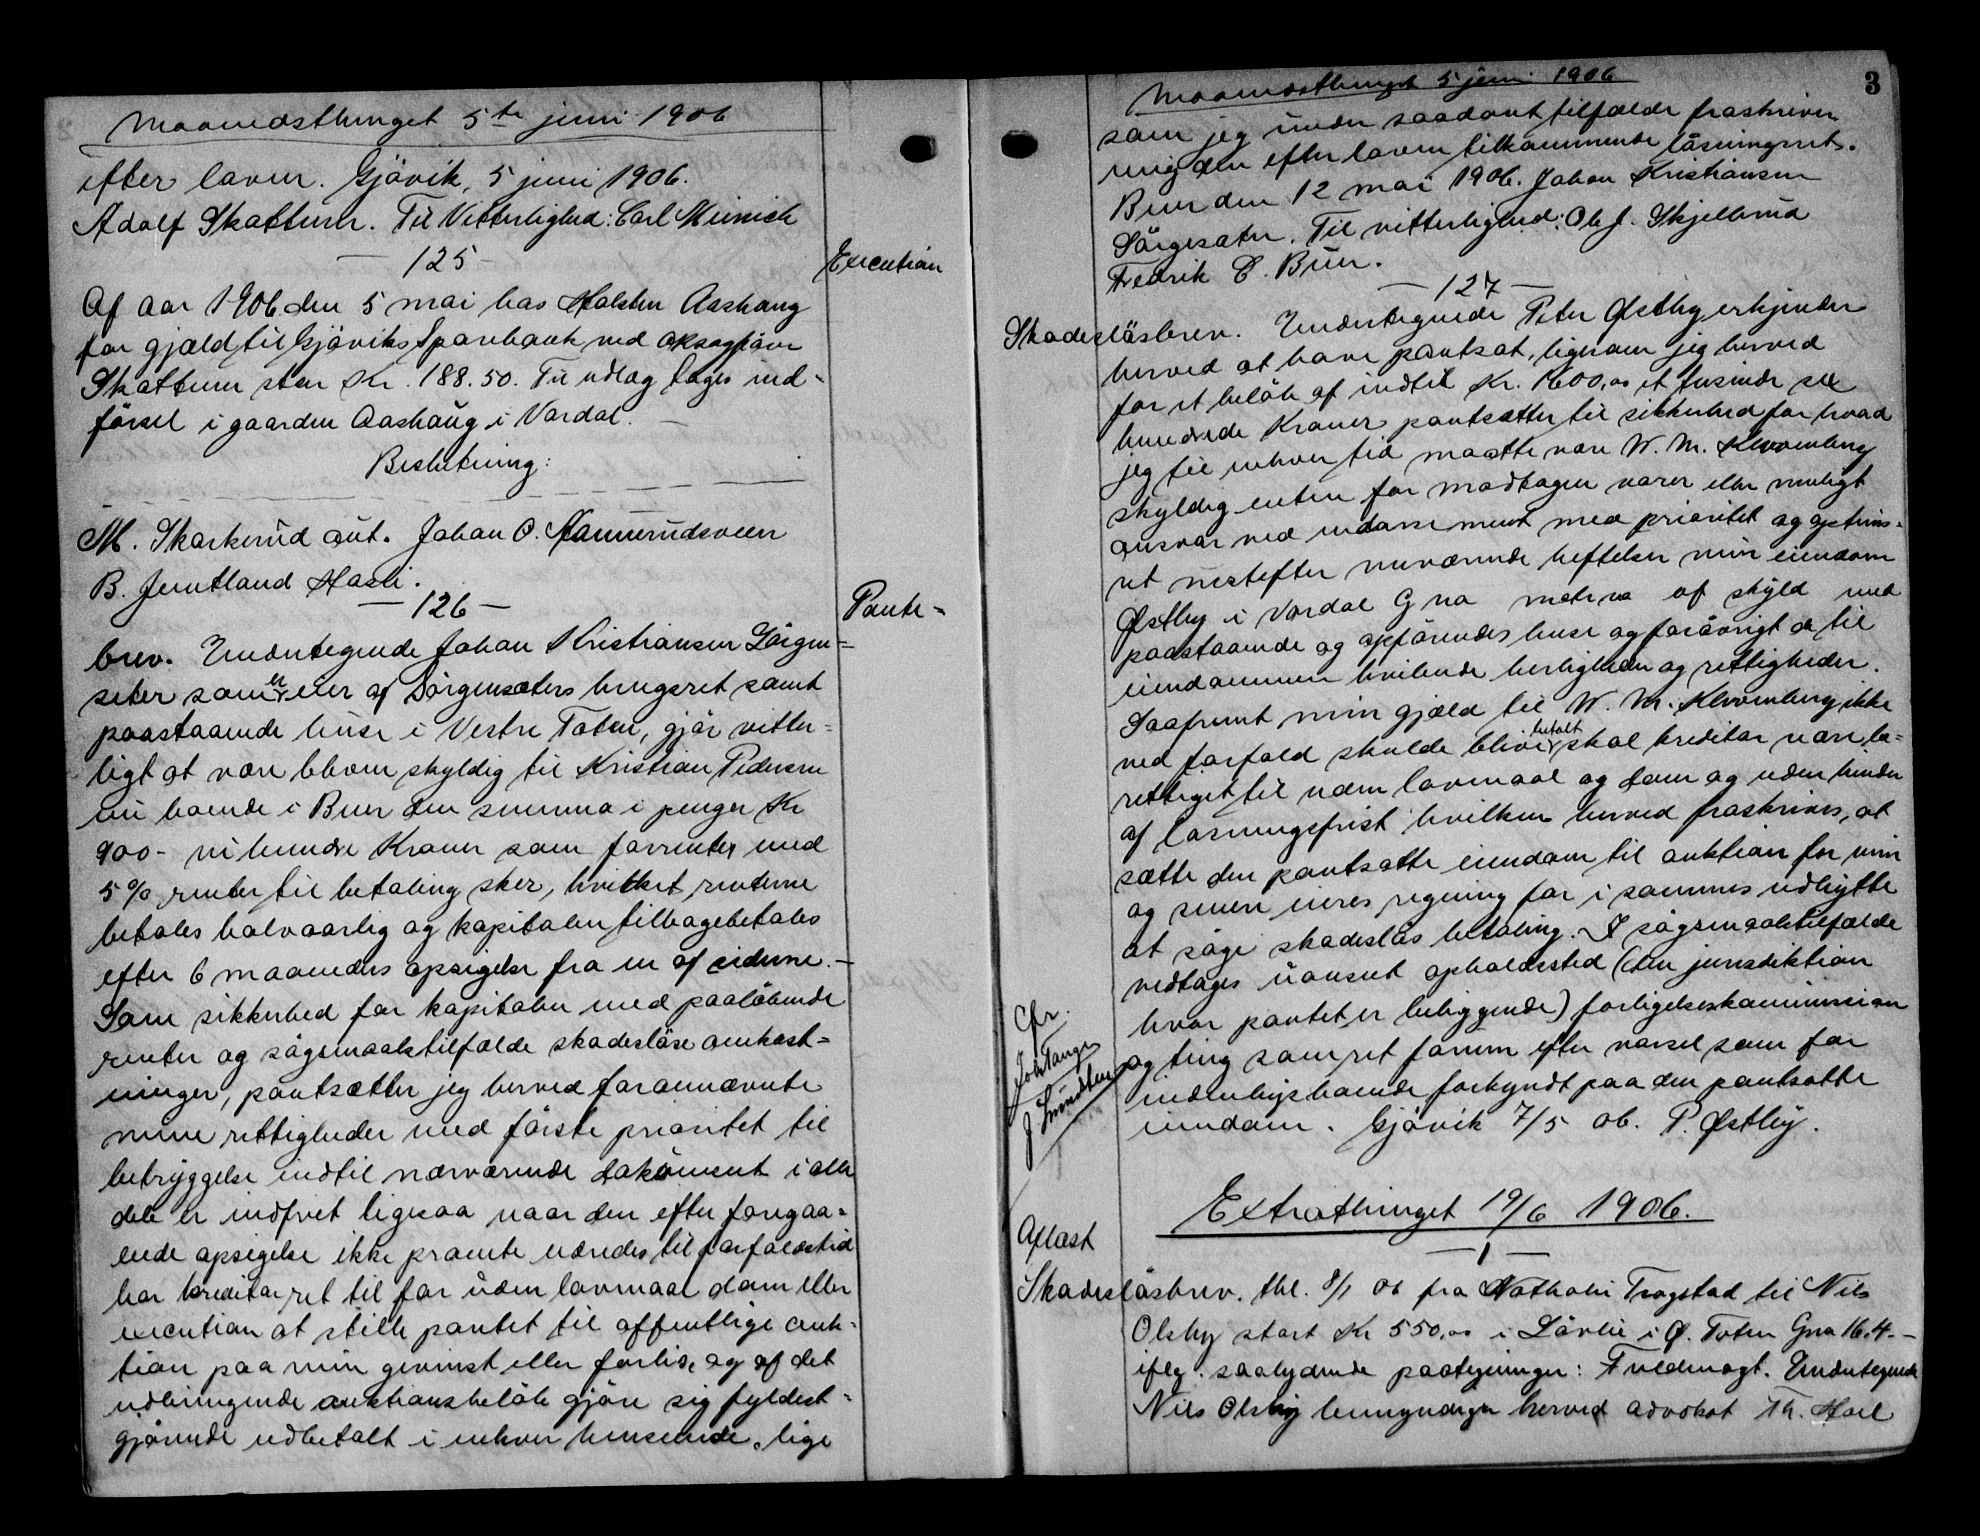 Maanedsthinget 5te juni 1906
efter loven. Gjövik, 5 juni 1906.
Adolf Skattum. Til Vitterlighed: Carl Münich
— 125 —
Execution
Af aar 1906 den 5 mai hos Halsten Aashaug
for gjæld til Gjöviks Sparebank ved oksagförer
Skattum stor Kr. 188.50. Til udlag toges ind-
försel i gaarden Aashaug i Vardal. —
Beslutning:
M. Skarkerud aut. Johan O. Nannerudsveen
B. Jemtland Hasli.
— 126 —
Pante-
brev. Undertegnede Johan Kristiansen Sörgen-
seter som er eier af Sörgensæters brugsret samt
paastaaende huse i Vestre Toten, gjör vitter-
ligt at være bleven skyldig til Kristian Pedersen
nu boende i Buer den summa i penger Kr
900- ni hundre Kroner som forrentes med
5 % renter til betaling sker, hvilket renterne
betales halvaarlig og kapitalen tilbagebetales
efter 6 maaneders opsigelse fra en af siderne. —
Som sikkerhed for kapitalen med paalöbende
renter og sögsmaalstilfælde skadeslöse omkost-
ninger, pantsætter jeg herved forannævnte
mine rettigheder med förste prioritet til
betryggelse indtil nærværende dokument i alle
dele er indfriet ligesaa naar den efter foregaa-
ende opsigelse ikke promte udredes til forfaldstid
har kreditor ret til for uden lovmaal dom eller
execution at stille pantet til offentlige auk-
tion paa min gevinst eller forlis, og af det
udbringende auktionsbelöb gjöre sig fyldest-
gjörende udbetalt i enhver henseende, lige
Maanedsthinget 5 juni 1906
3
som jeg under saadant tilfælde fraskriver
mig den efter loven tilkommende lösningsret.
Buer den 12 mai 1906. Johan Kristiansen
Sörgesæter. Til vitterlighed: Ole J. Skjellerud
Fredrik C. Buer.
— 127 —
Skadeslösbrev. Undertegnede Peter Østby erkjender
herved at have pantsat, ligesom jeg herved
for et belöb af indtil Kr. 1600,00 et tusinde sex
hundrede Kroner pantsætter til sikkerhed for hvad
jeg til enhver tid maatte være W. M. Klovenberg
skyldig enten for modtagen varer eller muligt
ansvar ved endossement med prioritet og optrins-
ret nestefter nuværende heftelser min eiendom
Østby i Vardal G no matr no af skyld med
paastaaende og opförendes huse og foröviigt de til
eiendommen hvilende herligheder og rettigheder.
Saafremt min gjæld til W. M. Klovenberg ikke
ved forfald skulde blive betalt skal kreditor være be-
rettiget til uden lovmaal og dom og uden hinder
af lösningsfrist hvilken herved fraskrives, at
sætte den pantsatte eiendom til auktion for min
og senere eieres regning for i sammes udbytte
at söge skadeslös betaling. I sögsmaalstilfælde
vedtages uanset opholdssted (den jurisdiktion
hvor pantet er beliggende) forligelseskommission
og ting som ret forum efter varsel som for
indenbys boende forkyndt paa den pantsatte
eiendom. Gjövik 7/5 06. P. Østby.
Cfr.
Extrathinget 19/6 1906.
— 1 —
Aflæst
Skadeslösbrev. thl. 9/1 06 fra Nathalie Trogstad til Nils
Olsby stort Kr 550,00 i Lövlie i Ø. Toten Gno 16.4.-
iflg. saalydende paategninger: Fuldmagt. Undertegnede
Nils Olsby bemyndiger herved advokat Th. Hoel